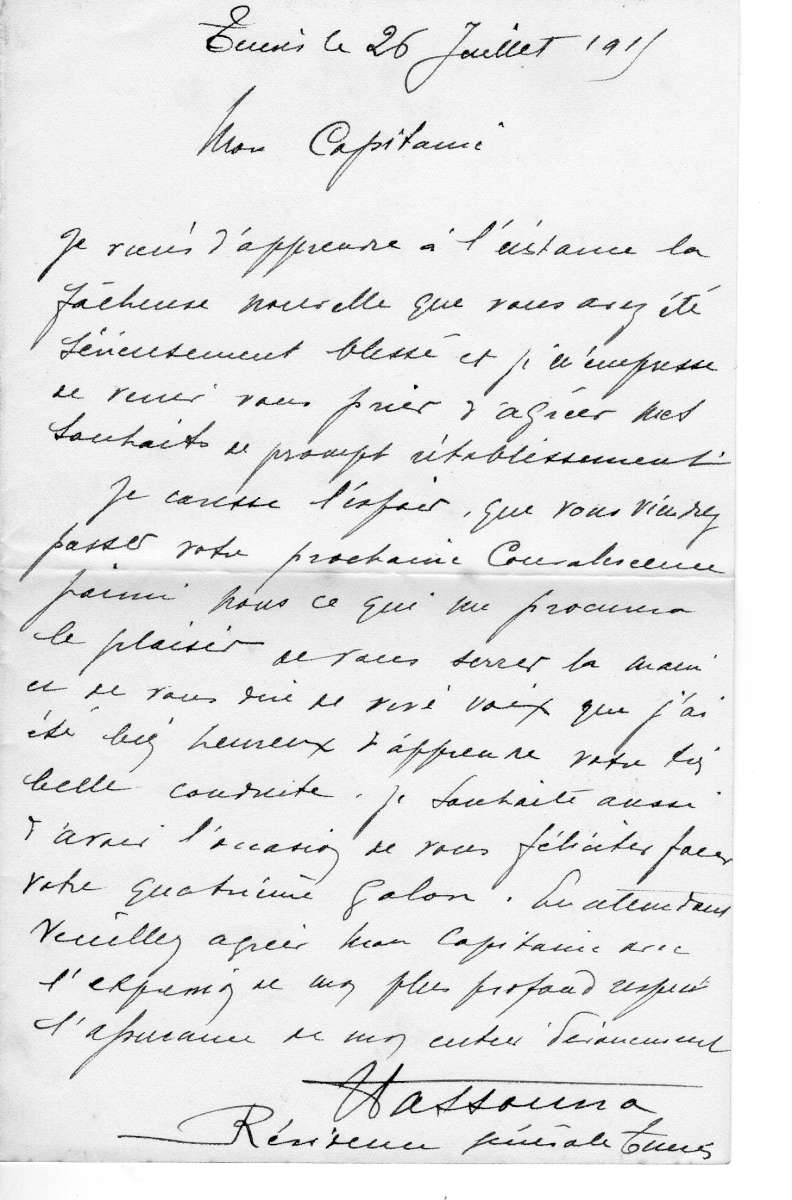 Tunis le 26 Juillet 1915
Mon Capitaine
Je viens d'apprendre à l'instance la
fâcheuse nouvelle que vous avez été
sérieusement blessé et je m'empresse
de venir vous prier d'agréer mes
souhaits de prompt rétablissement.
Je caresse l'espoir, que vous viendrez
passer votre prochaine convalescence
parmi nous ce qui me procurera
le plaisir de vous serrer la main
et de vous dire de vive voix que j'ai
été bien heureux d'apprendre votre très
belle conduite. Je souhaite aussi
d'avoir l'occasion de vous féliciter pour
votre quatrième galon. En attendant
Veuillez agréer Mon Capitaine avec
l'expression de mon plus profond respect
l'assurance de mon entier dévouement
Hassouna
Résidence générale Tunis